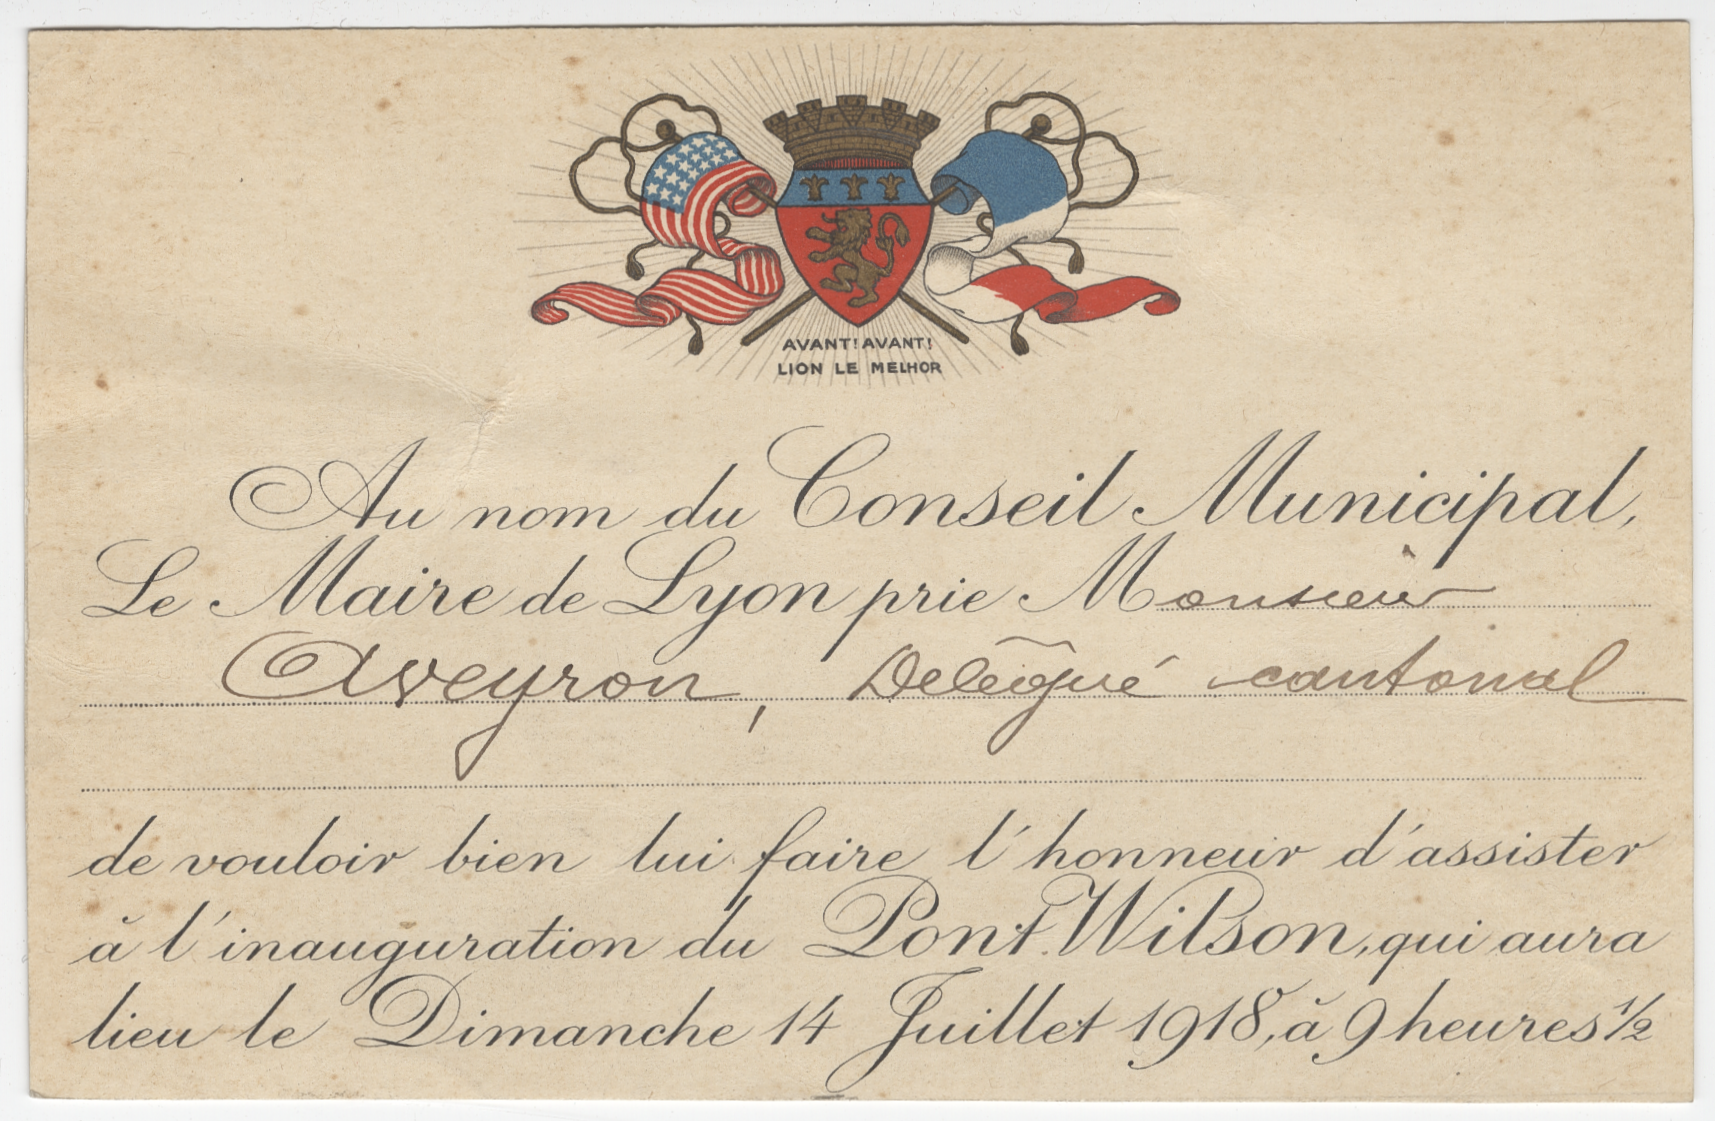 AVANT! AVANT!
LION LE MELHOR
Au nom du Conseil Municipal,
Le Maire de Lyon prie Monsieur
Aveyron, Délégué cantonal
de vouloir bien lui faire l'honneur d'assister
à l'inauguration du Pont Wilson, qui aura
lieu le Dimanche 14 Juillet 1918, à 9 heures 1/2